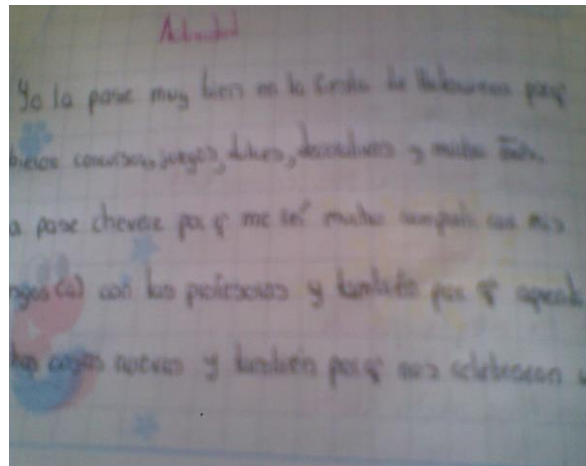 Actividad
Yo la pase muy bien en la fiesta de Halloween porq
hicieron concursos, juegos, dulces, y mucho más.
a pase chevere porq me rei mucho compartí con mis
migos(a) con los profesores y también por q aprendi
chas cosas nuevas y también porq nos celebraron